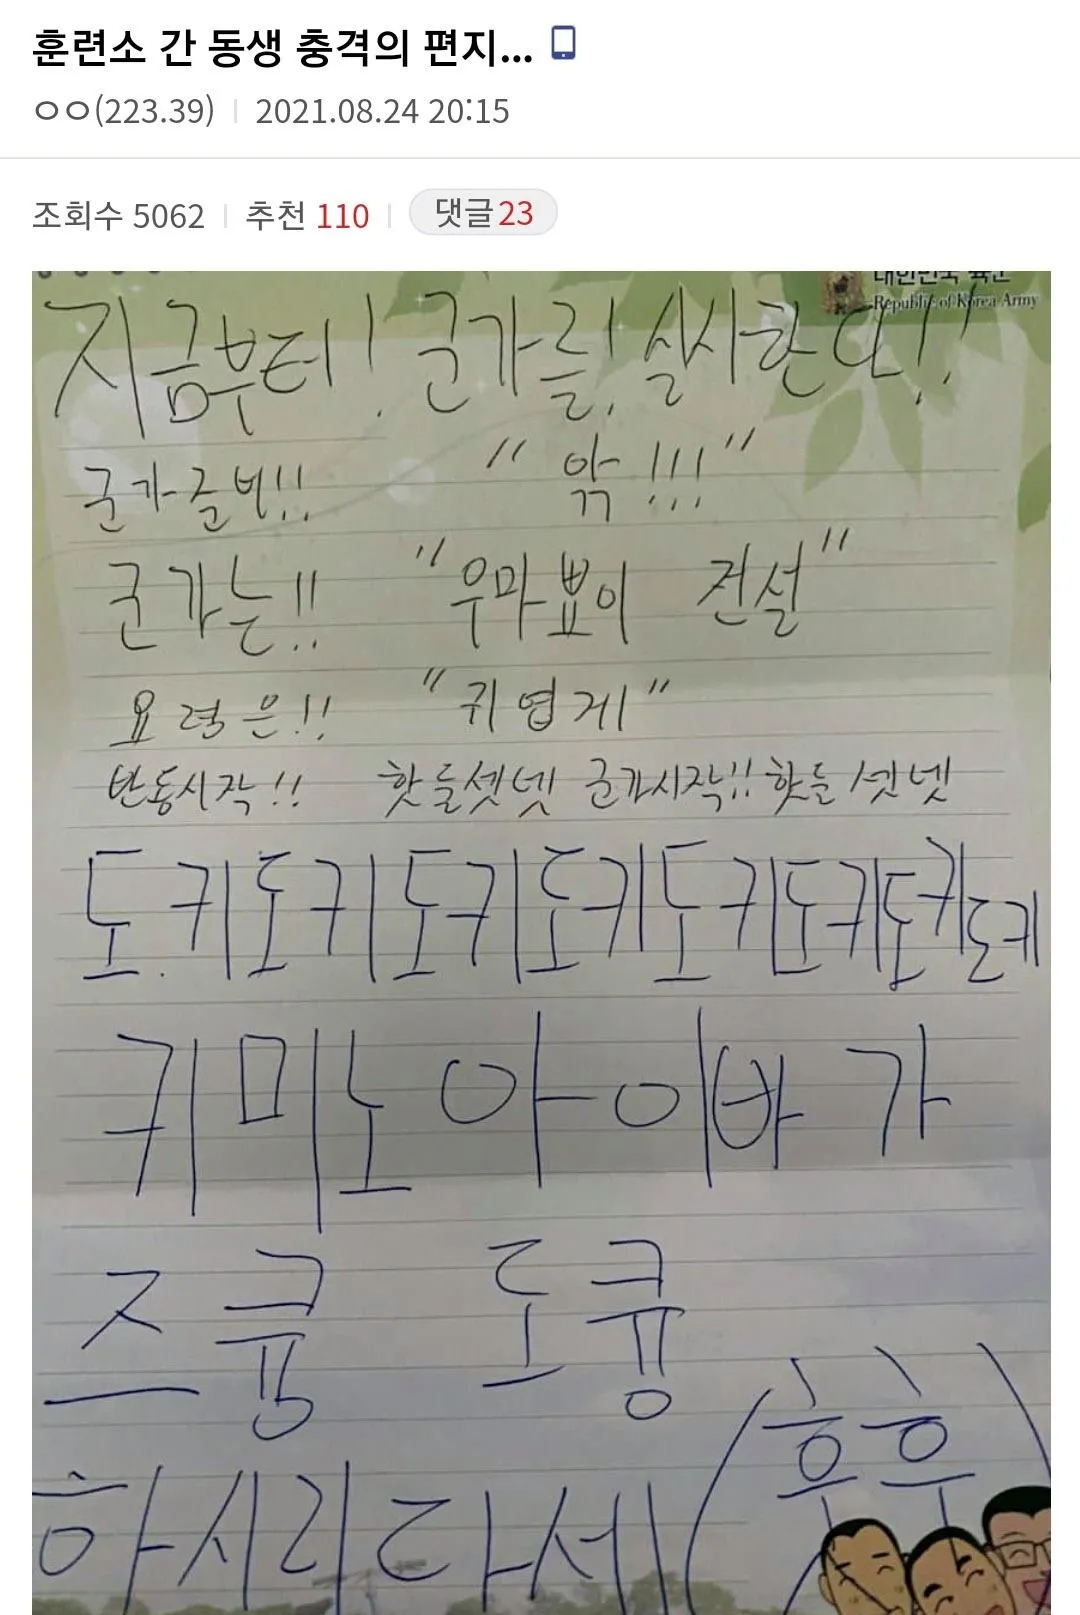 훈련소 간 동생 충격의 편지...
ㅇㅇ(223.39) 2021.08.24 20:15
조회수 5062 추천 110 댓글 23
대한민국 육군
Republic of Korea Army
지금부터! 군가를! 실시한다!!
군가준비!! "악!!!"
군가는!! "우마뾰이 전설"
요령은!! "귀엽게"
반동시작!! 핫둘셋넷 군가시작!! 핫둘셋넷
도.키도키도키도키도키도키도키도키
키미노아이바가
즈큥 도큥
하시리다세 (후후)